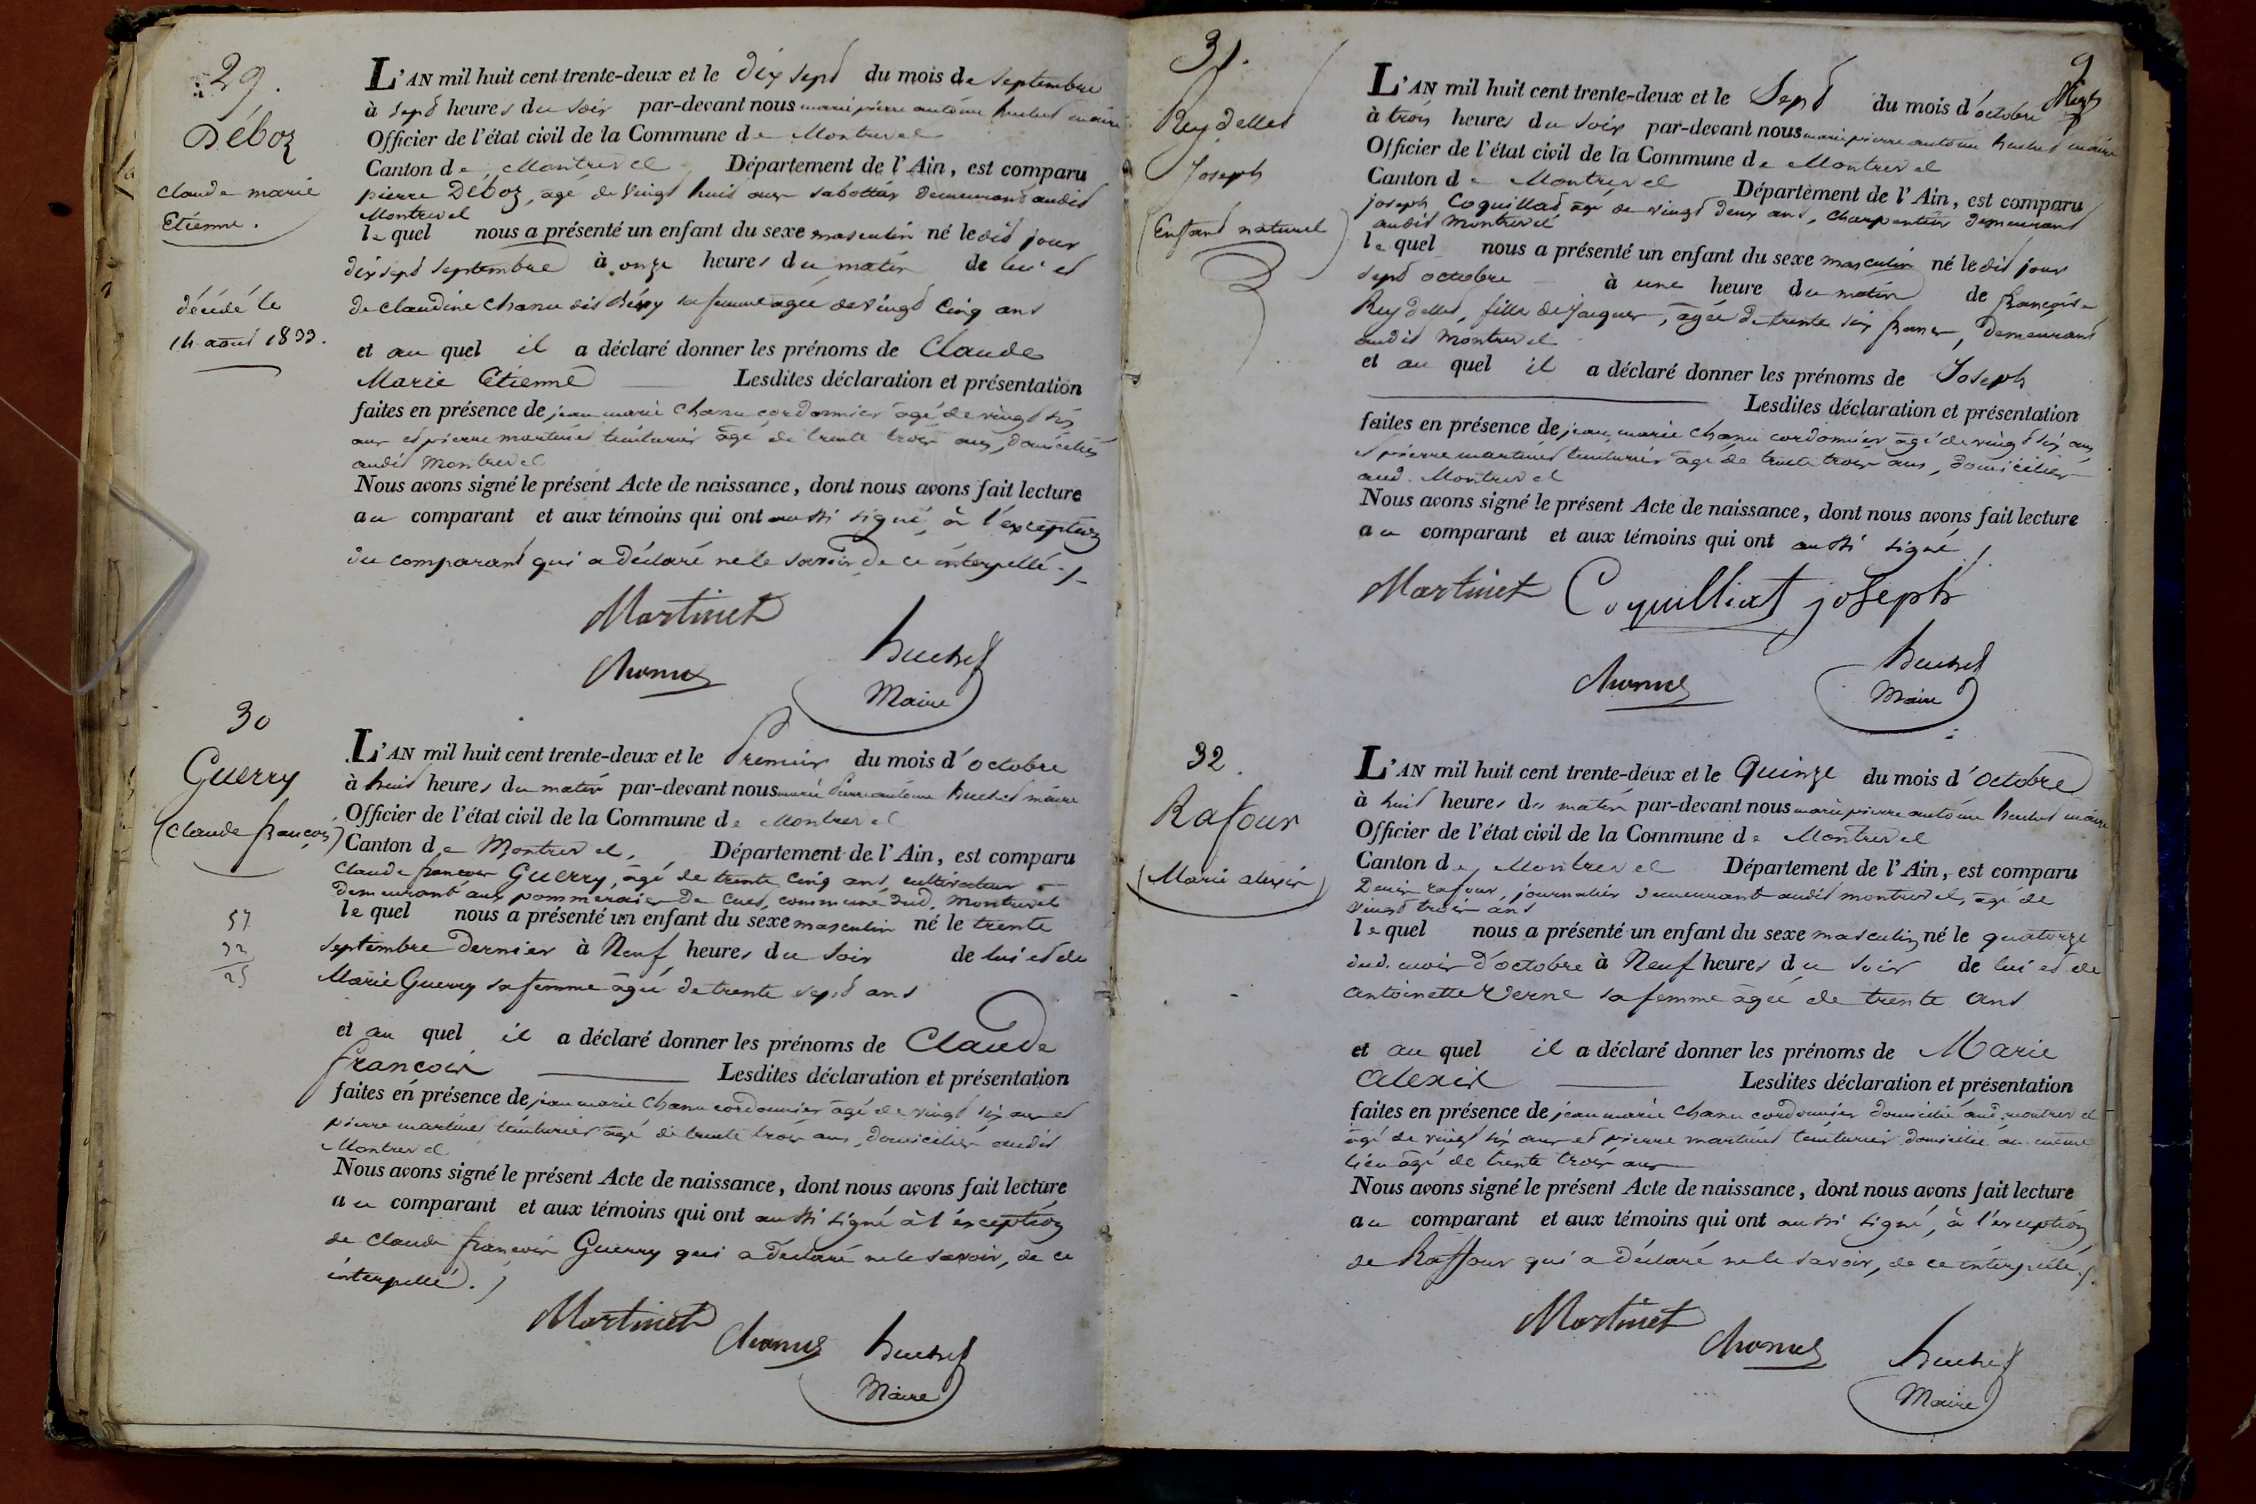 29.
Déboz
claude marie
Etienne.
décédé le
14 aout 1833.
L'AN mil huit cent trente-deux et le dix sept du mois de septembre
à sept heures du soir par-devant nous marie pierre antoine huchet maire
Officier de l'état civil de la Commune de Montrevel
Canton de Montrevel Département de l'Ain, est comparu
pierre Déboz, agé de vingt huit ans sabottier demeurant audit
Montrevel
lequel nous a présenté un enfant du sexe masculin né ledit jour
dix sept septembre à onze heures du matin de lui et
de claudine chanu dit sa femme agée de vingt cinq ans
et au quel il a déclaré donner les prénoms de Claude
Marie Etienne Lesdites déclaration et présentation
faites en présence de jean marie chanu cordonnier âgé de vingt six
ans et pierre martinet teinturier âgé de trente trois ans, domiciliés
audit Montrevel
Nous avons signé le présent Acte de naissance, dont nous avons fait lecture
au comparant et aux témoins qui ont aussi signé, à l'exception
du comparant qui a déclaré ne le savoir de ce interpellé ./.
Martinet
Chanu
huchet
Maire
30
Guerry
(Claude françois)
57
32
25
L'AN mil huit cent trente-deux et le Premier du mois d'octobre
à huit heures du matin par-devant nous marie Pierre antoine huchet maire
Officier de l'état civil de la Commune de Montrevel
Canton de Montrevel, Département de l'Ain, est comparu
Claude francois Guerry, âgé de trente cinq ans, cultivateur
demeurant aux pommeraies de Cuet, commune dud. Montrevel
lequel nous a présenté un enfant du sexe masculin né le trente
septembre dernier à Neuf heures du soir de lui et de
Marie Guerry sa femme âgée de trente sept ans
et au quel il a déclaré donner les prénoms de Claude
francois Lesdites déclaration et présentation
faites en présence de jean marie Chanu cordonnier âgé de vingt six ans et
pierre martinet teinturier âgé de trente trois ans, domiciliés audit
Montrevel
Nous avons signé le présent Acte de naissance, dont nous avons fait lecture
au comparant et aux témoins qui ont aussi signé à l'exception
de claude francois Guerry qui a déclaré ne le savoir, de ce
interpellé ./
Martinet
Chanu
huchet
Maire
9
31.
Reydellet
Joseph
(Enfant naturel)
L'AN mil huit cent trente-deux et le Sept du mois d'octobre
à trois heures du soir par-devant nous marie pierre antoine huchet maire
Officier de l'état civil de la Commune de Montrevel
Canton de Montrevel Département de l'Ain, est comparu
joseph Coquillat âgé de vingt deux ans, charpentier demeurant
audit Montrevel
lequel nous a présenté un enfant du sexe masculin né ledit jour
sept octobre à une heure du matin de françoise
Reydellet, fille de Jacques, âgée de trente six, demeurant
audit Montrevel
et au quel il a déclaré donner les prénoms de Joseph
Lesdites déclaration et présentation
faites en présence de jean marie chanu cordonnier âgé de vingt six ans
et pierre martinet teinturier âgé de trente trois ans, domiciliés
aud. Montrevel
Nous avons signé le présent Acte de naissance, dont nous avons fait lecture
au comparant et aux témoins qui ont aussi signé ./.
Martinet Coquilliat joseph
Chanu
huchet
Maire
32.
Rafour
(Marie alexis)
L'AN mil huit cent trente-deux et le Quinze du mois d'octobre
à huit heures du matin par-devant nous marie pierre antoine huchet maire
Officier de l'état civil de la Commune de Montrevel
Canton de Montrevel Département de l'Ain, est comparu
Denis rafour, journalier demeurant audit montrevel, âgé de
vingt trois ans
lequel nous a présenté un enfant du sexe masculin né le quatorze
dud. mois d'octobre à Neuf heures du soir de lui et de
antoinette Verne sa femme âgée de trente ans
et au quel il a déclaré donner les prénoms de Marie
Alexis Lesdites déclaration et présentation
faites en présence de jean marie chanu cordonnier domicilié aud. montrevel
âgé de vingt six ans et pierre martinet teinturier domicilié au même
lieu âgé de trente trois ans
Nous avons signé le présent Acte de naissance, dont nous avons fait lecture
au comparant et aux témoins qui ont aussi signé, à l'exception
de Raffour qui a déclaré ne le savoir, de ce interpellé ./.
Martinet
Chanu
huchet
Maire